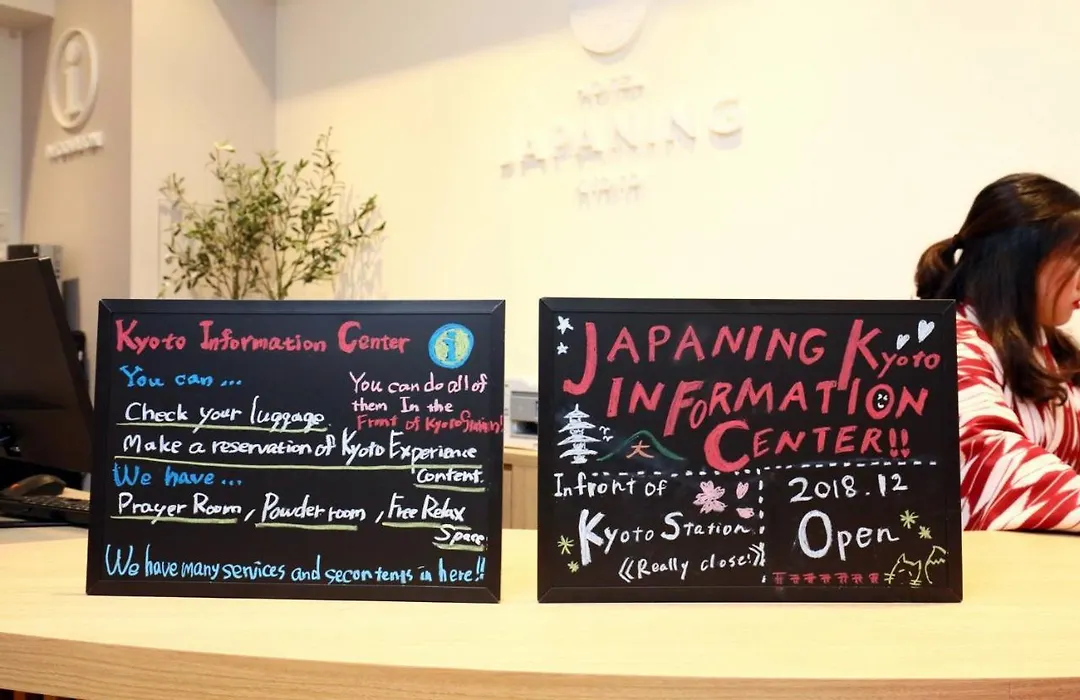 i
HOTEL
JAPANING
KYOTO
Kyoto Information Center
i
You can ...
Check your luggage
Make a reservation of Kyoto Experience
Content.
You can do all of
them In the
Front of Kyoto Station!
We have ...
Prayer Room, Powder room, Free Relax
Space.
We have many services and secontents in here!!
JAPANING Kyoto
INFORMATION
CENTER!!
大
Infront of
Kyoto Station
《Really close!》
2018.12
Open